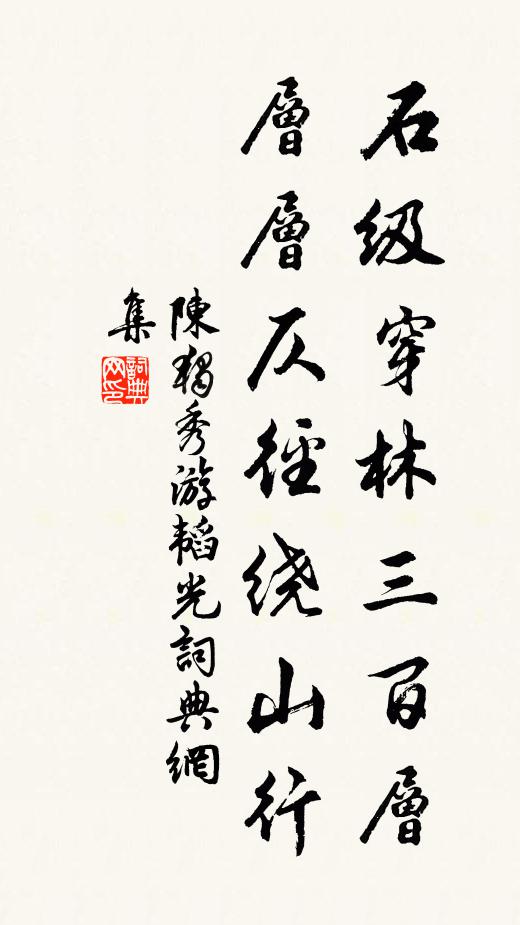 石级穿林三百層
層層仄徑绕山行
陳獨秀游韬光詞典網
集
詞典网印